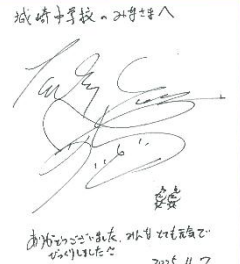 城崎中学校のみなさまへ
ありがとうございました。みんなとても元気で
びっくりしました
2025.4.7